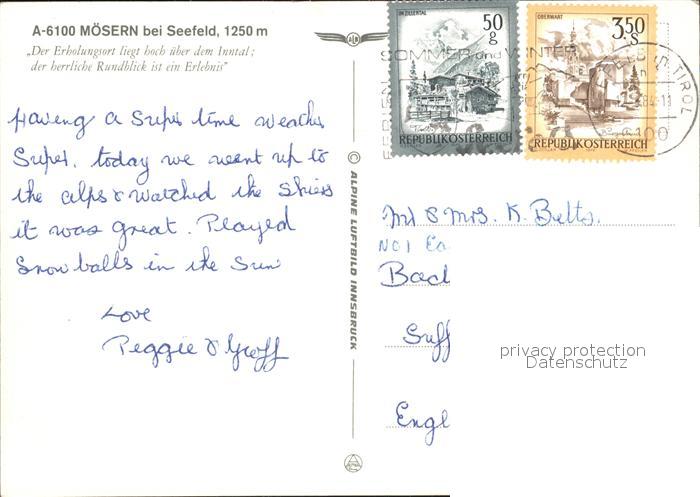 A-6100 MÖSERN bei Seefeld, 1250 m
„Der Erholungsort liegt hoch über dem Inntal;
der herrliche Rundblick ist ein Erlebnis"
Haveng a Super time weather
Super. today we went up to
the alps & watched the skiers
it was great. Played
Snow balls in the Sun
Love
Peggie & Geoff
© ALPINE LUFTBILD INNSBRUCK
IM ZILLERTAL
50
g
REPUBLIK ÖSTERREICH
OBERWART
3.50
S
REPUBLIK ÖSTERREICH
SOMMER und WINTER
TIROL
Mr & Mrs. K. Betts.
NO 1 Ea
Bad
Suff
Engl
privacy protection
Datenschutz